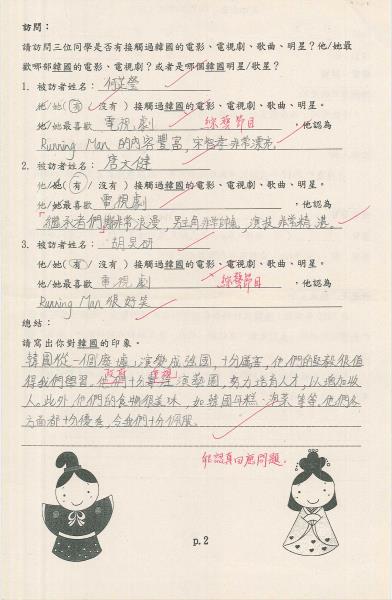 訪問：
請訪問三位同學是否有接觸過韓國的電影、電視劇、歌曲、明星？他/她最
歡哪部韓國的電影、電視劇？或者是哪個韓國明星/歌星？
1. 被訪者姓名：何芷瑩
他/她（有 / 沒有）接觸過韓國的電影、電視劇、歌曲、明星。
他/她最喜歡 電視劇 綜藝節目 ，他認為
Running Man 的內容豐富，宋智孝非常漂亮。
2. 被訪者姓名：唐文健
他/她（有 / 沒有）接觸過韓國的電影、電視劇、歌曲、明星。
他/她最喜歡 電視劇 ，他認為
「繼承者們」非常浪漫，男主角非常帥，演技非常精湛。
3. 被訪者姓名：胡
他/她（有 / 沒有）接觸過韓國的電影、電視劇、歌曲、明星。
他/她最喜歡 電視劇 綜藝節目 ，他認為
Running Man 很好笑
總結：
請寫出你對韓國的印象。
韓國從一個廢墟，演變成強國，十分厲害，他們的堅毅很值
得我們學習。政府十分重視演藝圈，努力培育人才，以增加收
入。此外，他們的食物很美味，如韓國年糕、泡菜等等。他們各
方面都十分優秀，令我們十分佩服。
能認真回應問題。
p.2